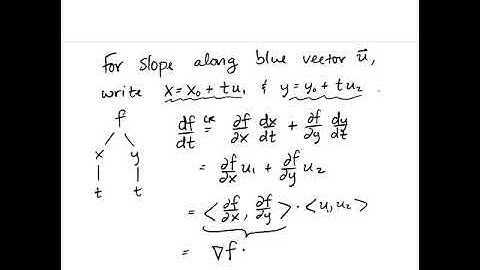 For slope along blue vector u⃗,
write x = x₀ + tu₁ & y = y₀ + tu₂.
f
x y
t t
df/dt CR= ∂f/∂x dx/dt + ∂f/∂y dy/dt
= ∂f/∂x u₁ + ∂f/∂y u₂
= <∂f/∂x, ∂f/∂y> · <u₁, u₂>
= ∇f ·